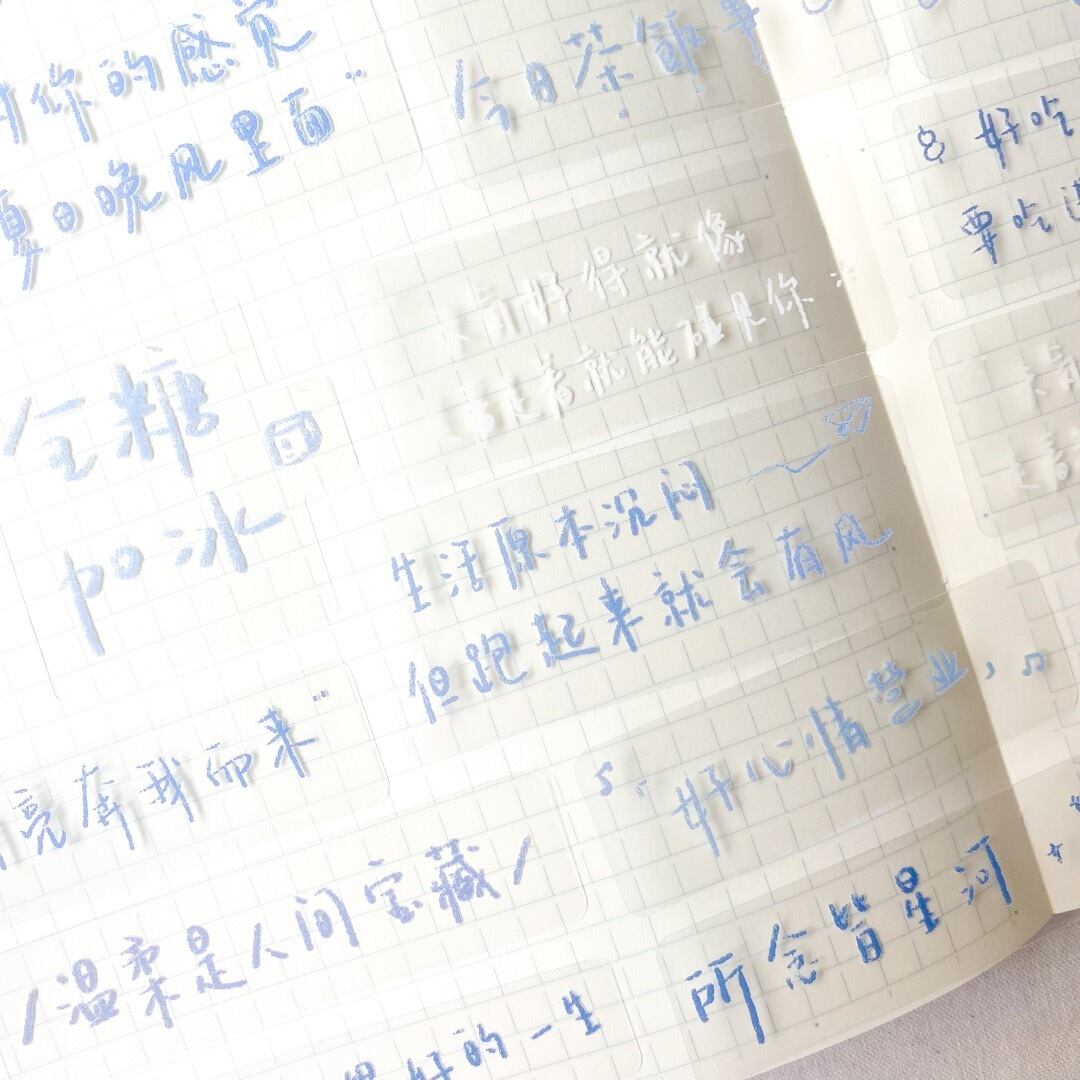 你的感觉
夏日晚风里面
今日茶
好得就像
走着就能碰见你
全糖
加冰
生活原本沉闷
但跑起来就会有风
亮奔我而来
好心情营业
/温柔是人间宝藏/
所念皆星河
好的一生
好吃
要吃